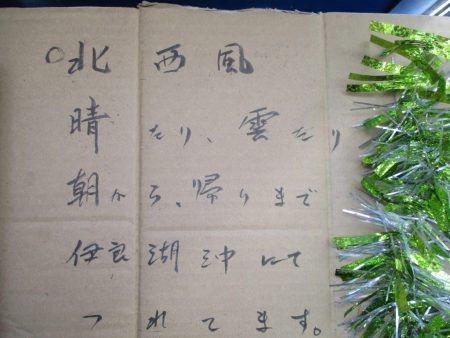 ○北西風
晴たり、雲たり
朝から、帰りまで
伊良湖沖にて
つれてます。